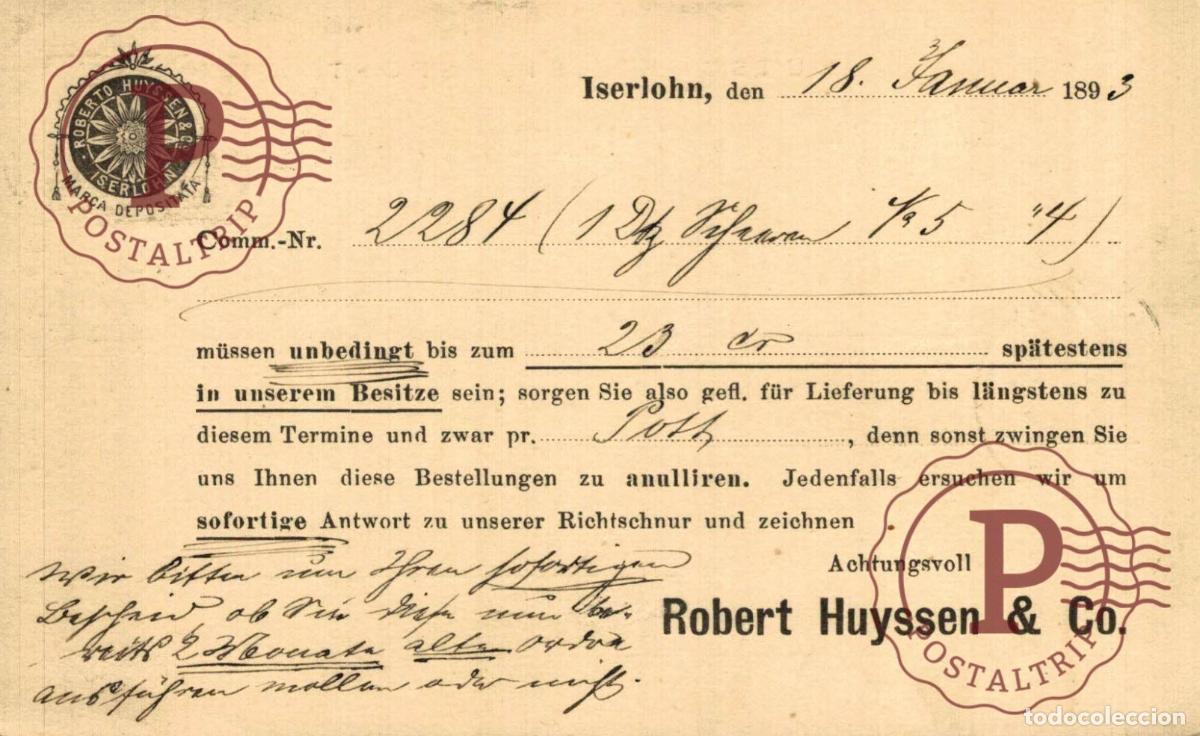 ROBERTO HUYSSEN & Co
ISERLOHN
MARCA DEPOSITATA
P
POSTALTRIP
Iserlohn, den 18. Januar 1893
Comm.-Nr. 2284 (1 Dtz Scheeren 5 "4)
müssen unbedingt bis zum 23 cr spätestens
in unserem Besitze sein; sorgen Sie also gefl. für Lieferung bis längstens zu
diesem Termine und zwar pr. Post, denn sonst zwingen Sie
uns Ihnen diese Bestellungen zu anulliren. Jedenfalls ersuchen wir um
sofortige Antwort zu unserer Richtschnur und zeichnen
Achtungsvoll
Robert Huyssen & Co.
Wir bitten um Ihren sofortigen
Bescheid, ob Sie diese nun be-
reits 2 Monate alte Ordre
ausführen wollen oder nicht.
P
POSTALTRIP
todocoleccion